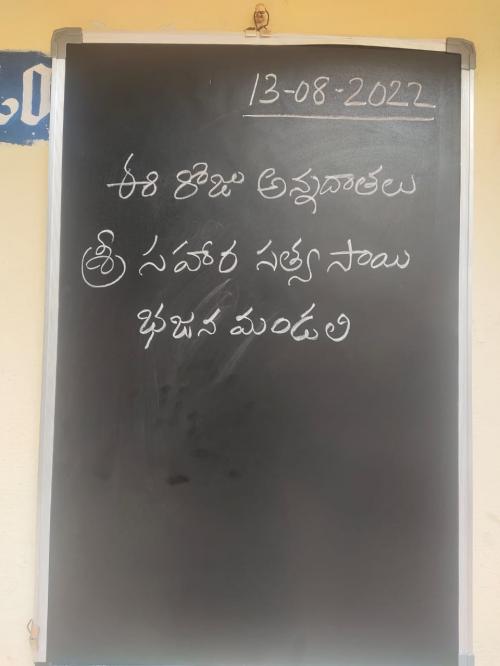 13-08-2022
ఈ రోజు అన్నదాతలు
శ్రీ సహార సత్స సాయి
భజన మండలి